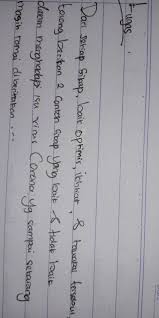 Tugas.
Dari setiap sikap baik optimis, ikhtiar, & tawakal tersebut
tolong berikan 2 contoh sikap yang baik & tidak baik
dalam menghadapi isu virus Corona yg sampai sekarang
masih ramai dibicarakan ...